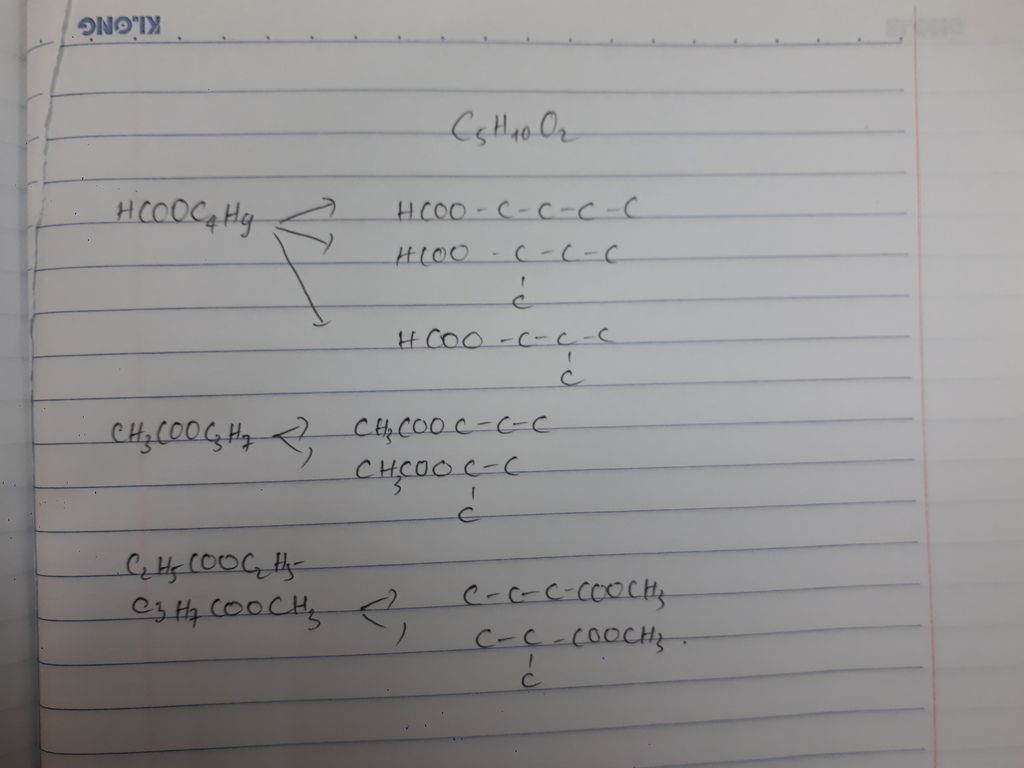 KLONG
C5H10O2
HCOOC4H9
HCOO - C - C - C - C
HCOO - C - C - C
C
HCOO - C - C - C
C
CH3COOC3H7
CH3COO C - C - C
CH3COO C - C
C
C2H5COOC2H5
C3H7COOCH3
C - C - C - COOCH3
C - C - COOCH3.
C